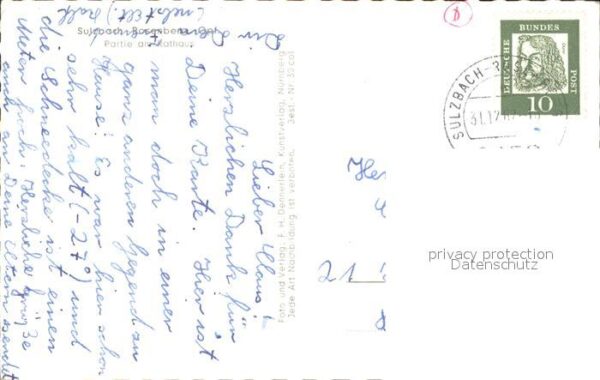 Sulzbach-Rosenberg/Opf.
Partie am Rathaus
Lieber Klaus!
Herzlichen Dank für
Deine Karte. Hier ist
man doch in einer
ganz anderen Gegend zu
Hause! Es war hier schon
sehr kalt (-27°) und
die Schneedecke ist einen
Meter hoch. Herzliche Grüße
auch an Deine Eltern sendet
Dir
Foto und Verlag: F. H. Dennerlein, Kunstverlag, Nürnberg
Jede Art Nachbildung ist verboten. Best. Nr.
DEUTSCHE
BUNDES
POST
10
SULZBACH-R
31.12
He
21
privacy protection
Datenschutz